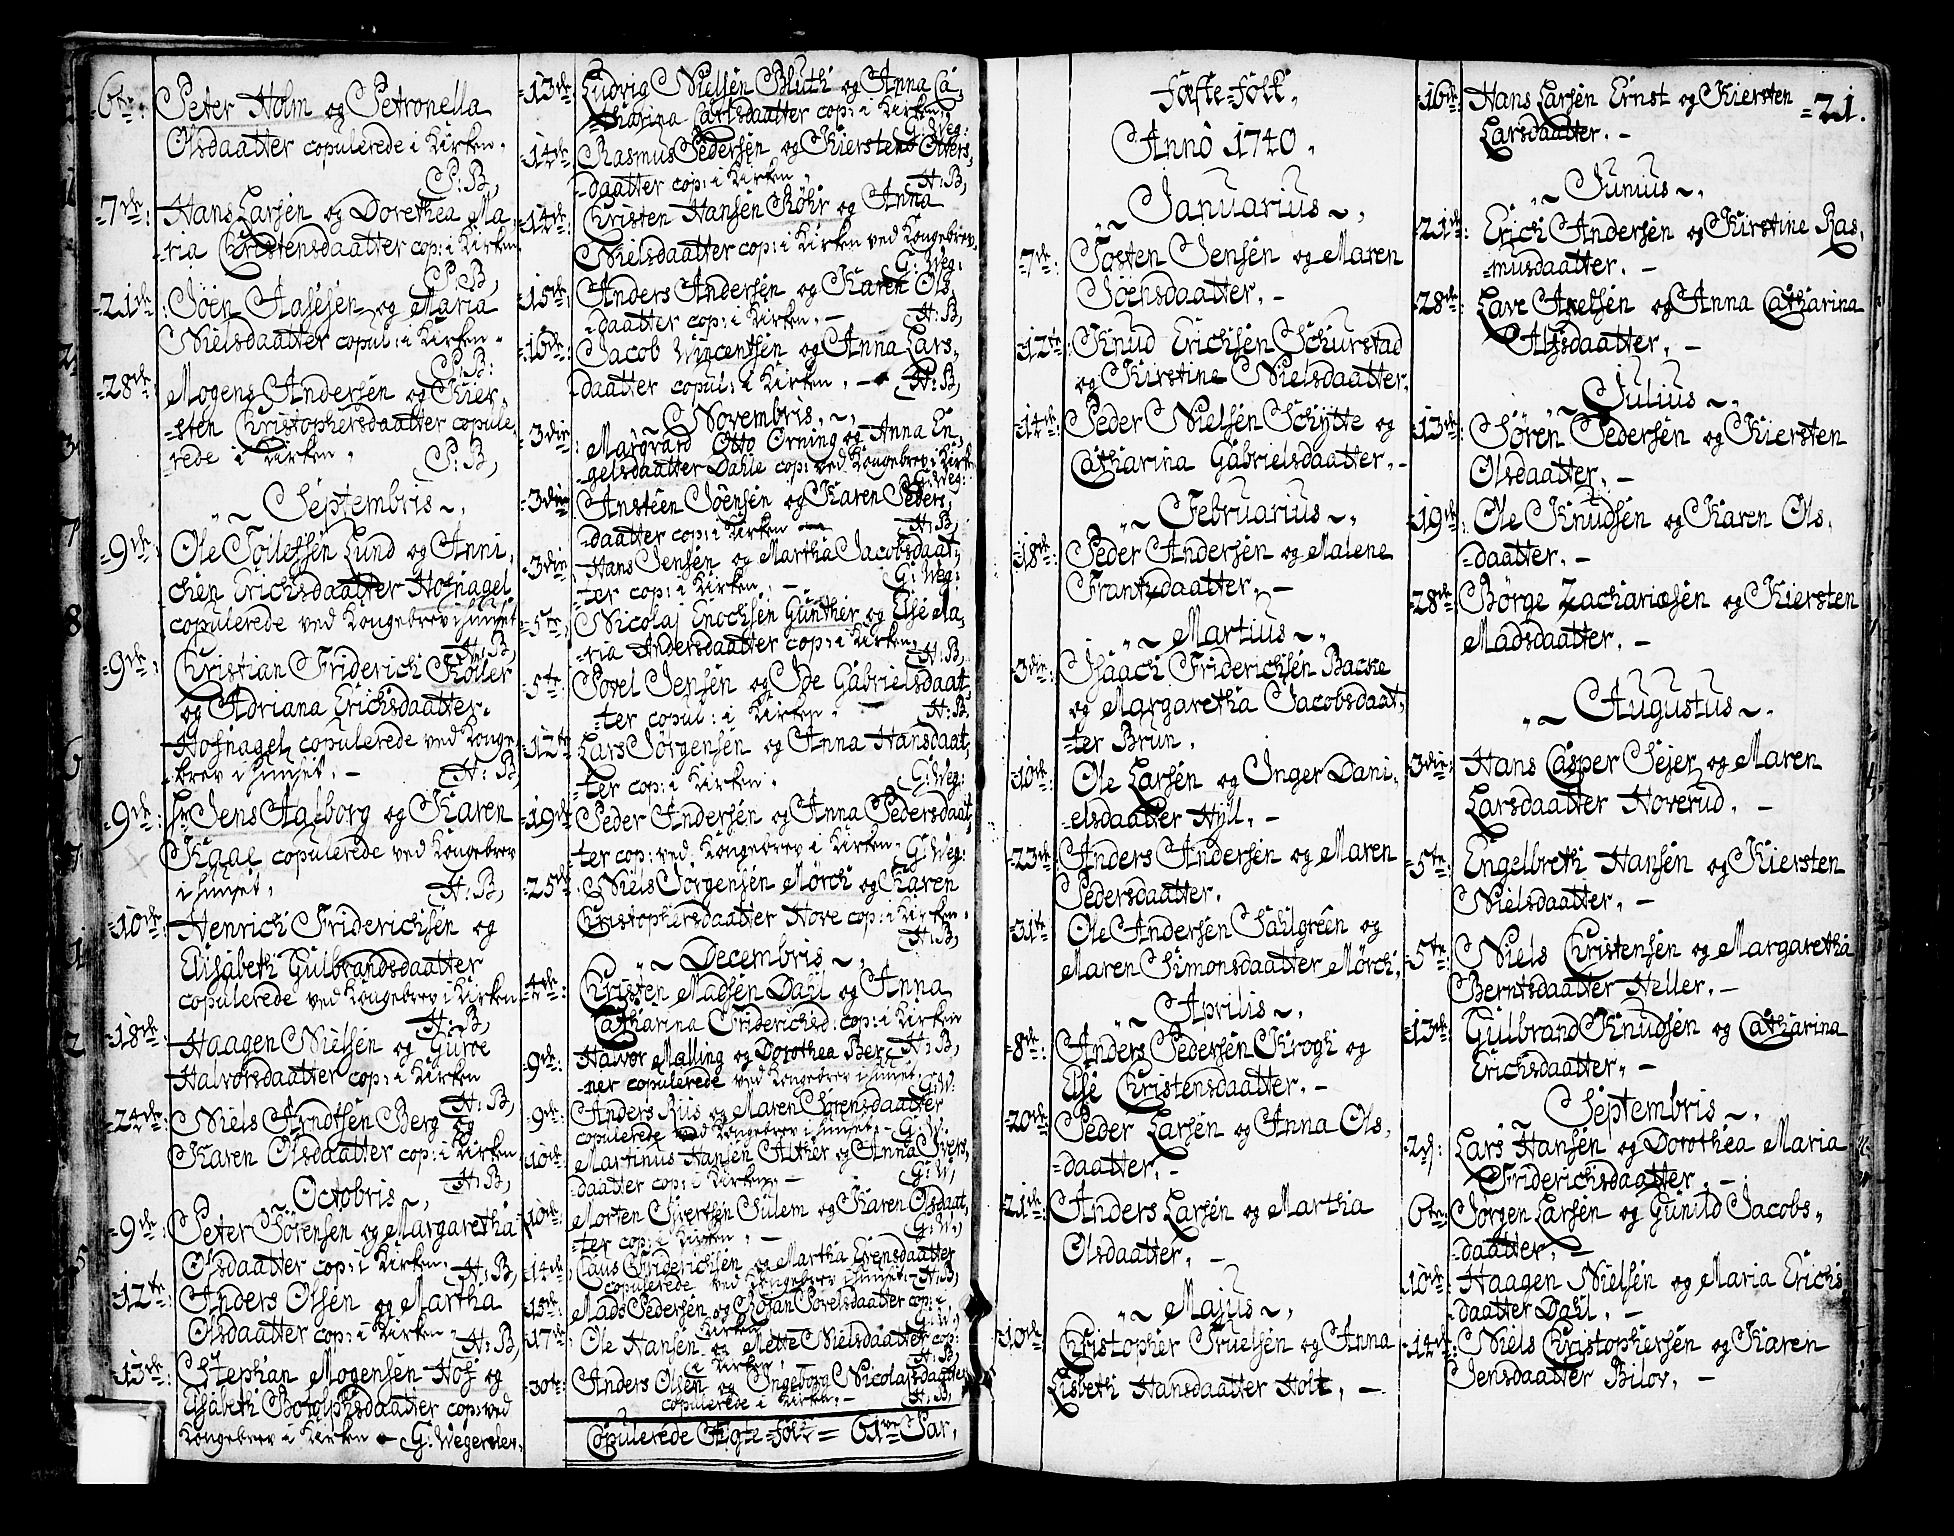 6te: Peter Holm og Petronella
Olsdaatter copulerede i Kirken.
P: B,
7de: Hans Larsen og Dorethea Ma-
ria Christensdaatter cop: i Kirken.
P: B,
21de: Joen Aasesen og Maria
Nielsdaatter copul: i Kirken.
P: B:
28de: Mogens Andersen og Kier-
sten Christophersdaatter copule-
rede i Kirken.
P: B,
Septembris
9de: Ole Lund og Anni-
chen Erichsdaatter Hofnagel
copulerede ved Kongebrev i huuset
H: B,
9de: Christian Friderich Köller
og Adriana Erichsdaatter
Hofnagel copulerede ved Konge-
brev i huuset.
H: B,
9de: Hr Jens Aalborg og Karen
Kaae copulerede ved Kongebrev
i huuset.
H: B,
10de: Henrich Friderichsen og
Elisabeth Gulbrandsdaatter
copulerede ved Kongebrev i Kirken
H: B,
18de: Haagen Nielsen og Guroe
Halvorsdaatter cop: i Kirken
H: B,
24de: Niels Arndtsen Berg og
Karen Olsdaatter cop: i Kirken
H: B,
Octobris
9de: Peter Sörensen og Margaretha
Olsdaatter cop: i Kirken. H: B,
12te: Anders Olsen og Martha
Olsdaatter cop: i Kirken. H: B,
13de: Stephan Mogensen Hof og
Elsabeth Botolphsdaatter cop: ved
Kongebrev i Kirken G: Wegersler.
13de: Ludvig Nielsen Bluth og Anna Ca-
tharina Carlsdaatter cop: i Kirken,
G: Weg:
14de: Rasmus Pedersen og Kiersten Olvers-
daatter cop: i Kirken. H: B,
14de: Christen Hansen Röhr og Anna
Nielsdaatter cop: i Kirken ved Kongebrev.
G: Weg:
15de: Anders Andersen og Karen Ols-
daatter cop: i Kirken. H: B,
16de: Jacob Vincentsen og Anna Lars-
daatter copul: i Kirken. H: B,
Novembris.
3die: Margvard Otto Örning og Anna En-
gelsdaatter Dahle cop: ved Kongebrev i Kirken
G: Weg:
3die: Ansteen Joensen og Karen Peders-
daatter cop: i Kirken H: B,
3die: Hans Jensen og Martha Jacobsdaat-
ter cop: i Kirken. G: Weg:
5te: Nicolai Enochsen Günther og Else Ma-
ria Andersdaatter cop: i Kirken.
H: B,
5te: Povel Jensen og Ide Gabrielsdaat-
ter copul: i Kirken. H: B,
12te: Lars Jörgensen og Anna Hansdaat-
ter cop: i Kirken. G: Weg:
19de: Peder Andersen og Anna Pedersdaat-
ter cop: ved Kongebrev i Kirken. G: Weg:
25de: Niels Jörgensen Mörch og Karen
Christophersdaatter Hove cop: i Kirken.
H: B,
Decembris
4de: Christen Madsen Dahl og Anna
Catharina Friderichsd: cop: i Kirken
H: B,
9de: Halvor Malling og Dorothea Ber-
ner copulerede ved Kongebrev i huuset.
G: W:
9de: Anders Riis og Maren Sörensdaatter
copulerede ved Kongebrev i huuset. G: W:
10de: Martinus Hansen Alther og Anna Ivers-
daatter cop: i Kirken. G: W,
10de: Morten Sivertsen Sulem og Karen Olsdaat-
ter cop: i Kirken. G: W,
14de: Claus Friderichsen og Martha Evensdaatter
copulerede ved Kongebrev i huuset. H: B,
15de: Mads Pedersen og Johan Povelsdaatter cop: i
Kirken G: W,
17de: Ole Hansen og Mette Nielsdaatter cop:
i Kirken. H: B,
30te: Anders Olsen og Ingeborg Nicolaisdaatter
copulerede i Kirken. H: B,
Copulerede Ægte-folk = 61ve Par.
Fæste-Folk.
Anno 1740.
Januarius
7de: Tosten Jensen og Maren
Jochsdaatter.
12te: Knud Erichsen Schurstad
og Kirstine Nielsdaatter.
14de: Peder Nielsen Schytte og
Catharina Gabrielsdaatter.
Februarius
18de: Peder Andersen og Malene
Frantzdaatter.
Martius
3die: Isaach Friderichsen Backe
og Margaretha Jacobsdaat-
ter Brun.
10de: Ole Larsen og Inger Dani-
elsdaatter Hyll.
23de: Anders Andersen og Maren
Pedersdaatter.
31te: Ole Andersen Sahlgreen og
Maren Simonsdaatter Mörch.
Aprilis
8de: Anders Pedersen Krogh og
Else Christensdaatter.
20de: Peder Larsen og Anna Ols-
daatter.
21de: Anders Larsen og Martha
Olsdaatter.
Majus
10de: Christopher Truelsen og Anna
Lisbeth Hansdaatter Holt.
21.
16de: Hans Larsen Ernst og Kiersten
Larsdaatter.
Junius
21de: Erich Andersen og Kirstine Ras-
musdaatter.
28de: Lave Axelsen og Anna Catharina
Alfsdaatter.
Julius
13de: Sören Pedersen og Kiersten
Olsdaatter.
19de: Ole Knudsen og Karen Ols-
daatter.
28de: Börge Zachariæsen og Kiersten
Madsdaatter.
Augustus
3die: Hans Casper Sejer og Maren
Larsdaatter Hoverud.
5te: Engelbreth Hansen og Kiersten
Nielsdaatter.
5te: Niels Christensen og Margaretha
Berntsdaatter Heller.
13de: Gulbrand Knudsen og Catharina
Erichsdaatter.
Septembris
2d: Lars Hansen og Dorothea Maria
Friderichsdaatter.
6te: Jörgen Larsen og Gunild Jacobs-
daatter.
10de: Haagen Nielsen og Maria Erichs
daatter Dahl.
14de: Niels Christophersen og Karen
Jensdaatter Bilov.